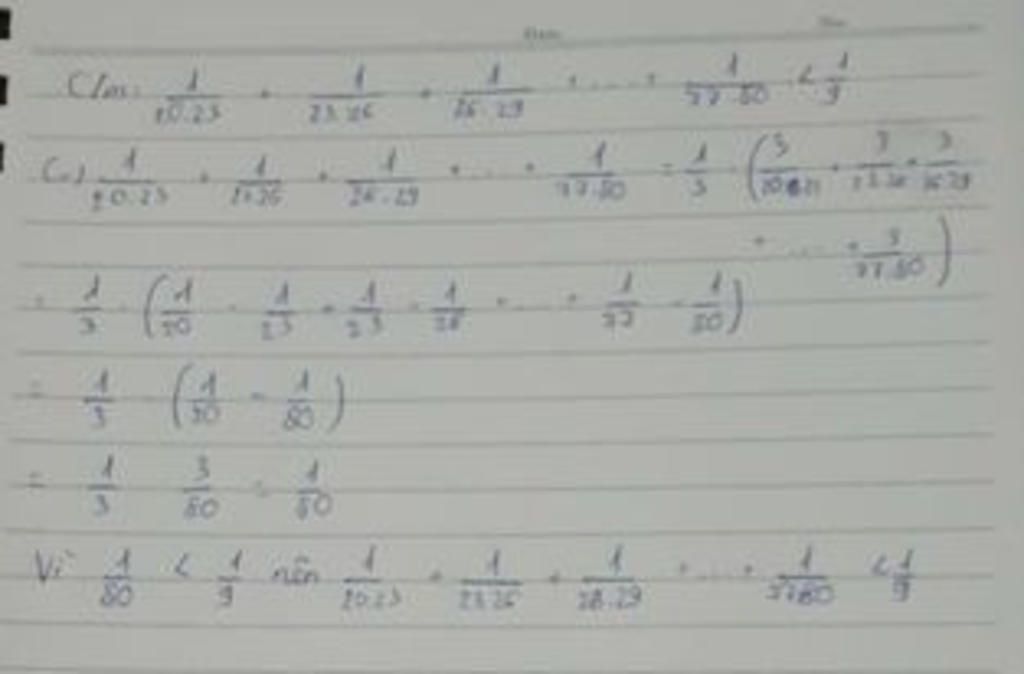 C/m: 1/20.23 + 1/23.26 + 1/26.29 + ... + 1/77.80 < 1/9
1/20.23 + 1/23.26 + 1/26.29 + ... + 1/77.80 = 1/3 . (3/20.23 + 3/23.26 + 3/26.29
+ ... + 3/77.80)
= 1/3 . (1/20 - 1/23 + 1/23 - 1/26 + ... + 1/77 - 1/80)
= 1/3 . (1/20 - 1/80)
= 1/3 . 3/80 = 1/80
Vì 1/80 < 1/9 nên 1/20.23 + 1/23.26 + 1/26.29 + ... + 1/77.80 < 1/9